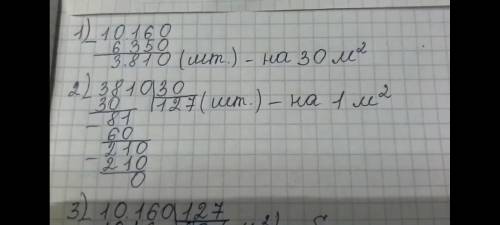 1) 10.160
- 6 350
3.810 (шт.) - на 30 м²
2) 3810 30
- 30 127 (шт.) - на 1 м²
81
- 60
210
- 210
0
3) 10.160 127